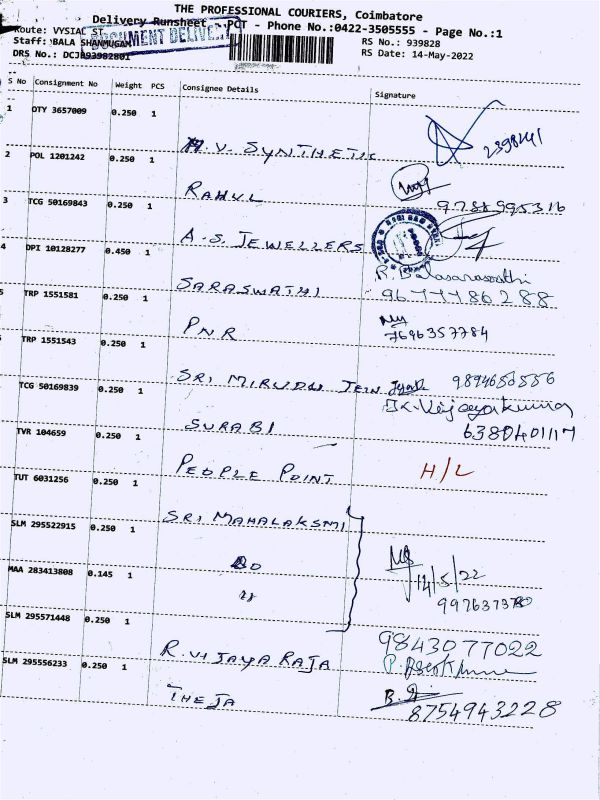 THE PROFESSIONAL COURIERS, Coimbatore
Delivery Runsheet - PCT - Phone No.:0422-3505555 - Page No.:1
Route: VYSIAL ST
DOCUMENT DELIVERY
RS No.: 939828
Staff: BALA SHANMUGAM
RS Date: 14-May-2022
DRS No.:
S No Consignment No Weight PCS Consignee Details Signature
1 DTY 3657009 0.250 1
V. SYNTHETIC 2398141
2 POL 1201242 0.250 1
RAHUL 9788995316
3 TCG 50169843 0.250 1
A.S. JEWELLERS
4 DPI 10128277 0.450 1
R. Balasaraswathi
SARASWATHI 9677786288
5 TRP 1551581 0.250 1
PNR 7696357784
TRP 1551543 0.250 1
SRI MIRUDU
TCG 50169839 0.250 1
SURABI 6380401117
TVR 104659 0.250 1
PEOPLE POINT H/L
TUT 6031256 0.250 1
SRI MAHALAKSMI
SLM 295522915 0.250 1
DO
14/5/22
MAA 283413808 0.145 1
SLM 295571448 0.250 1
9843077022
R. VIJAYA RAJA
SLM 295556233 0.250 1
THEJA 8754943228